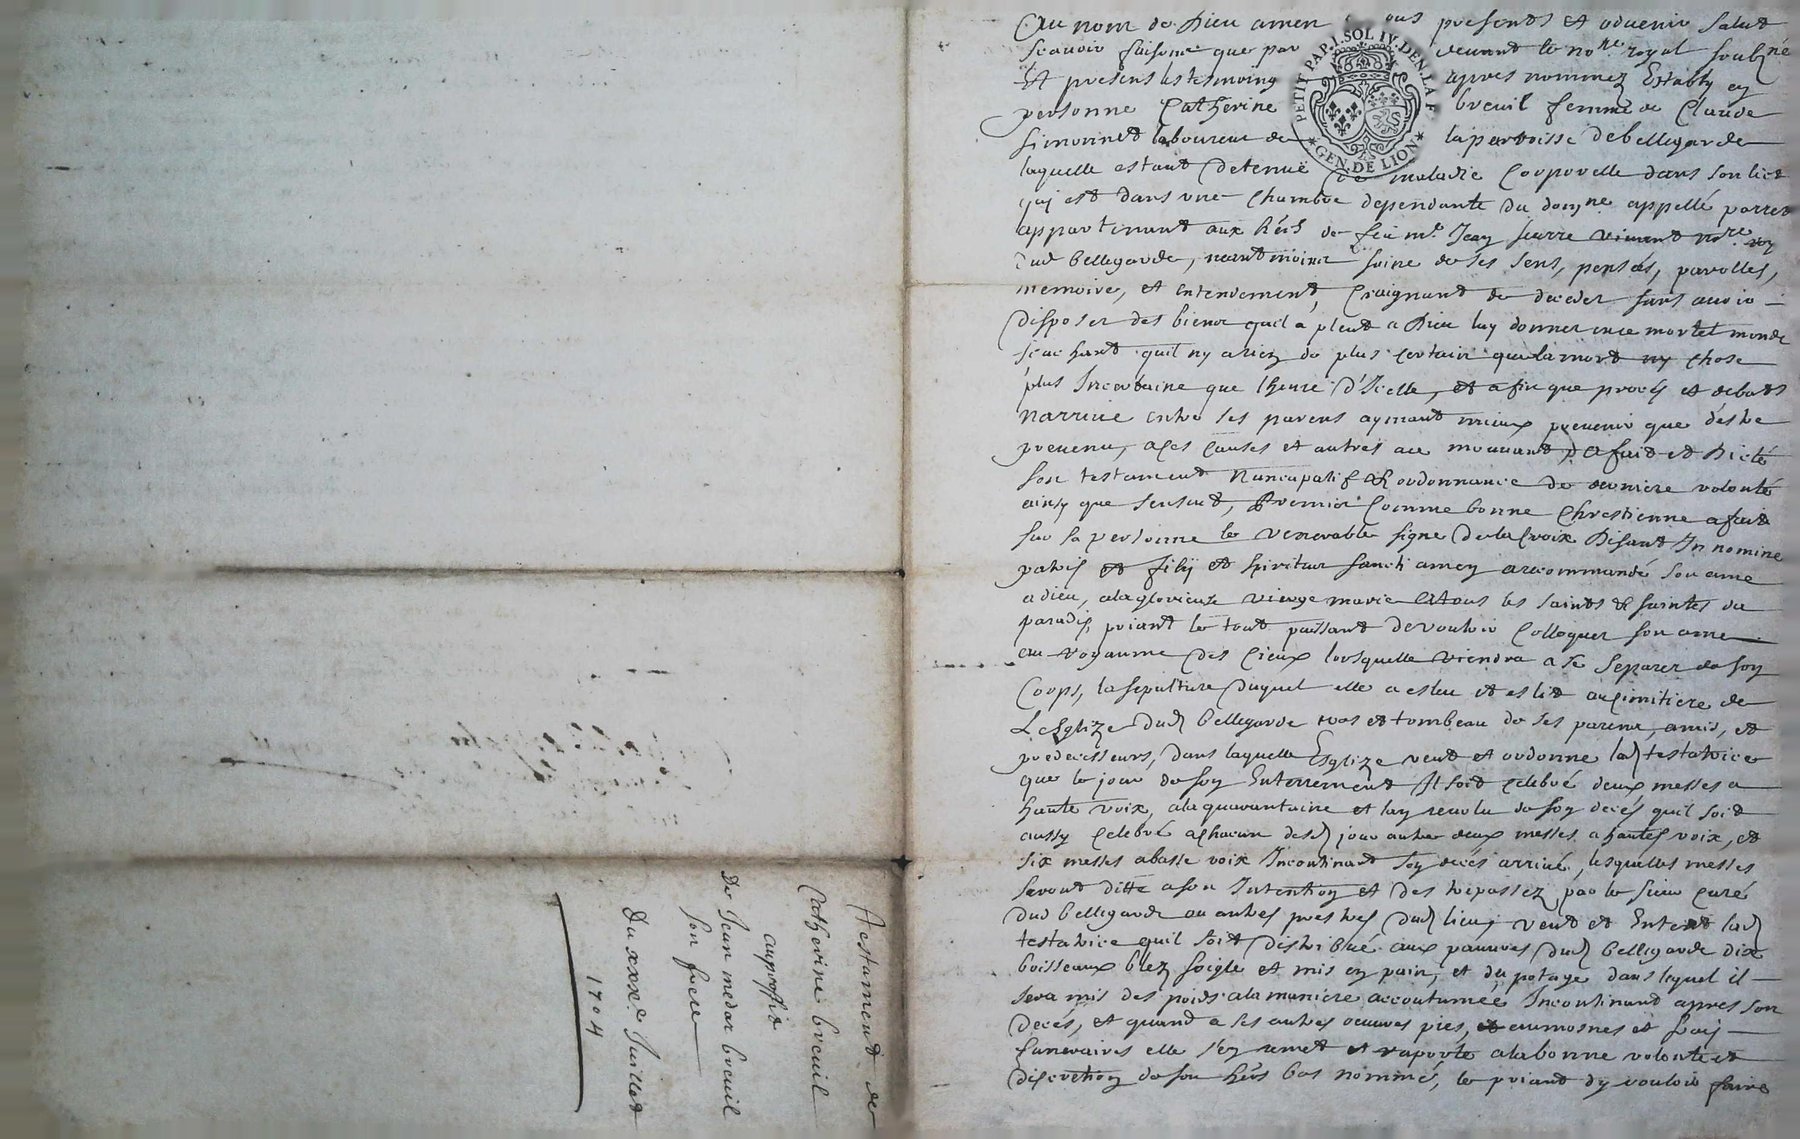 Au nom de Dieu amen ous presents et advenir salut
scavoir faisons que par devant le nore royal soubzné
Et presens les tesmoins apres nommez Estably en
personne Catherine breuil femme de Claude
Simonnet laboureur de la parroisse de bellegarde
laquelle estant detenuë de maladie Corporelle dans son lict
qui est dans une Chambre dependante du domne appellé
appartenant aux hers de feu me Jean nore
dud bellegarde, neantmoins saine de ses sens, pensés, parolles,
memoire, et entendement, Craignant de deceder sans avoir
disposer des biens quil a pleut a Dieu luy donner en ce mortel monde
scachant quil ny a rien de plus Certain que la mort ny Chose
plus Incertaine que lheure d'Icelle, et afin que procés et debats
narrive entre ses parens aymant mieux prevenir que destre
prevenu, a ces Causes et autres au mouvant, a fait et Dicté
son testament Nuncupatif et ordonnance de derniere volonté
ainsy que sensuit, Premier Comme bonne Chrestienne a fait
sur sa personne le venerable signe de la Croix Disant In nomine
patris et filij et spiritus sancti amen a recommandé son ame
a dieu, a la glorieuse vierge marie et tous les saints et saintes du
paradis, priant le tout puissant de vouloir Colloquer son ame
au royaume des Cieux lorsquelle viendra a se separer de son
Corps, la sepulture duquel elle a esleu et eslit au Cimitiere de
LEsglize dud bellegarde vas et tombeau de ses parens, amis, et
predecesseurs, dans laquelle Esglize veut et ordonne lad testatrice
que le jour de son Enterrement Il soit Celebré deux messes a
haute voix, a la quarantaine et lan revolu de son decés quil soit
aussy Celebré a Chacun desd jour autre deux messes a hautes voix, et
six messes a basse voix Incontinant son decés arrivé, lesquelles messes
seront ditte a son Intention et des trepassez par le sieur Curé
dud bellegarde ou autres prestres dud lieu, veut et Entent lad
testatrice quil soit distribué aux pauvres dud bellegarde dix
boisseaux blez soigle et mis en pain, et du potage dans lequel il
sera mis des poids a la maniere accoutumée Incontinant apres son
decés, et quand a ses autres oeuvres pies, et aumosnes et frais
funeraires elle s'en remet et raporte a la bonne volonte et
discretion de son hers bas nommé, le priant dy vouloir faire
Testament de
Catherine breuil
au proffit
De Jean medar breuil
son frere
Du xxxe Juillet
1704
PETIT PAP. I. SOL IV. DEN. LA F
GEN. DE LION